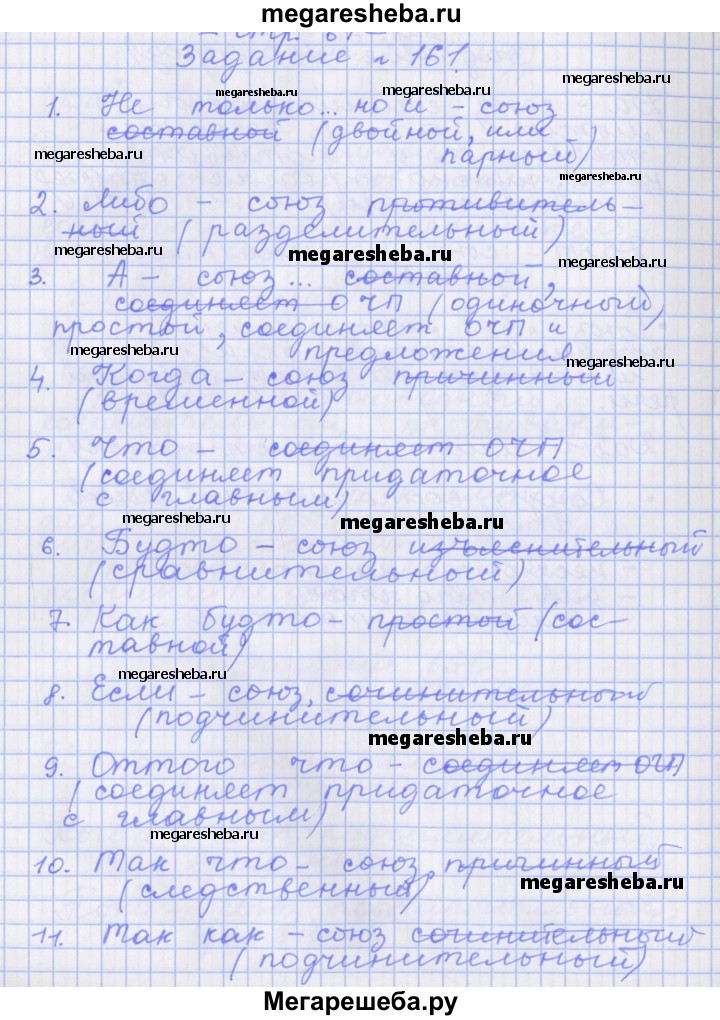 megaresheba.ru
Задание № 161.
megaresheba.ru
megaresheba.ru
1. Не только... но и - союз
составной (двойной, или
парный)
megaresheba.ru
megaresheba.ru
2. Либо - союз противитель-
ный (разделительный)
megaresheba.ru
megaresheba.ru
megaresheba.ru
3. А - союз... составной,
соединяет ОЧП (одиночный,
простой, соединяет ОЧП и
предложения
megaresheba.ru
megaresheba.ru
4. Когда - союз причинный
(временной)
5. Что - соединяет ОЧП
(соединяет придаточное
с главным)
megaresheba.ru
megaresheba.ru
6. Будто - союз изъяснительный
(сравнительный)
7. Как будто - простой (сос-
тавной)
megaresheba.ru
8. Если - союз, сочинительный
(подчинительный)
megaresheba.ru
9. Оттого что - соединяет ОЧП
(соединяет придаточное
с главным)
megaresheba.ru
10. Так что - союз, причинный
(следственный)
megaresheba.ru
11. Так как - союз сочинительный
(подчинительный)
Мегарешеба.ру